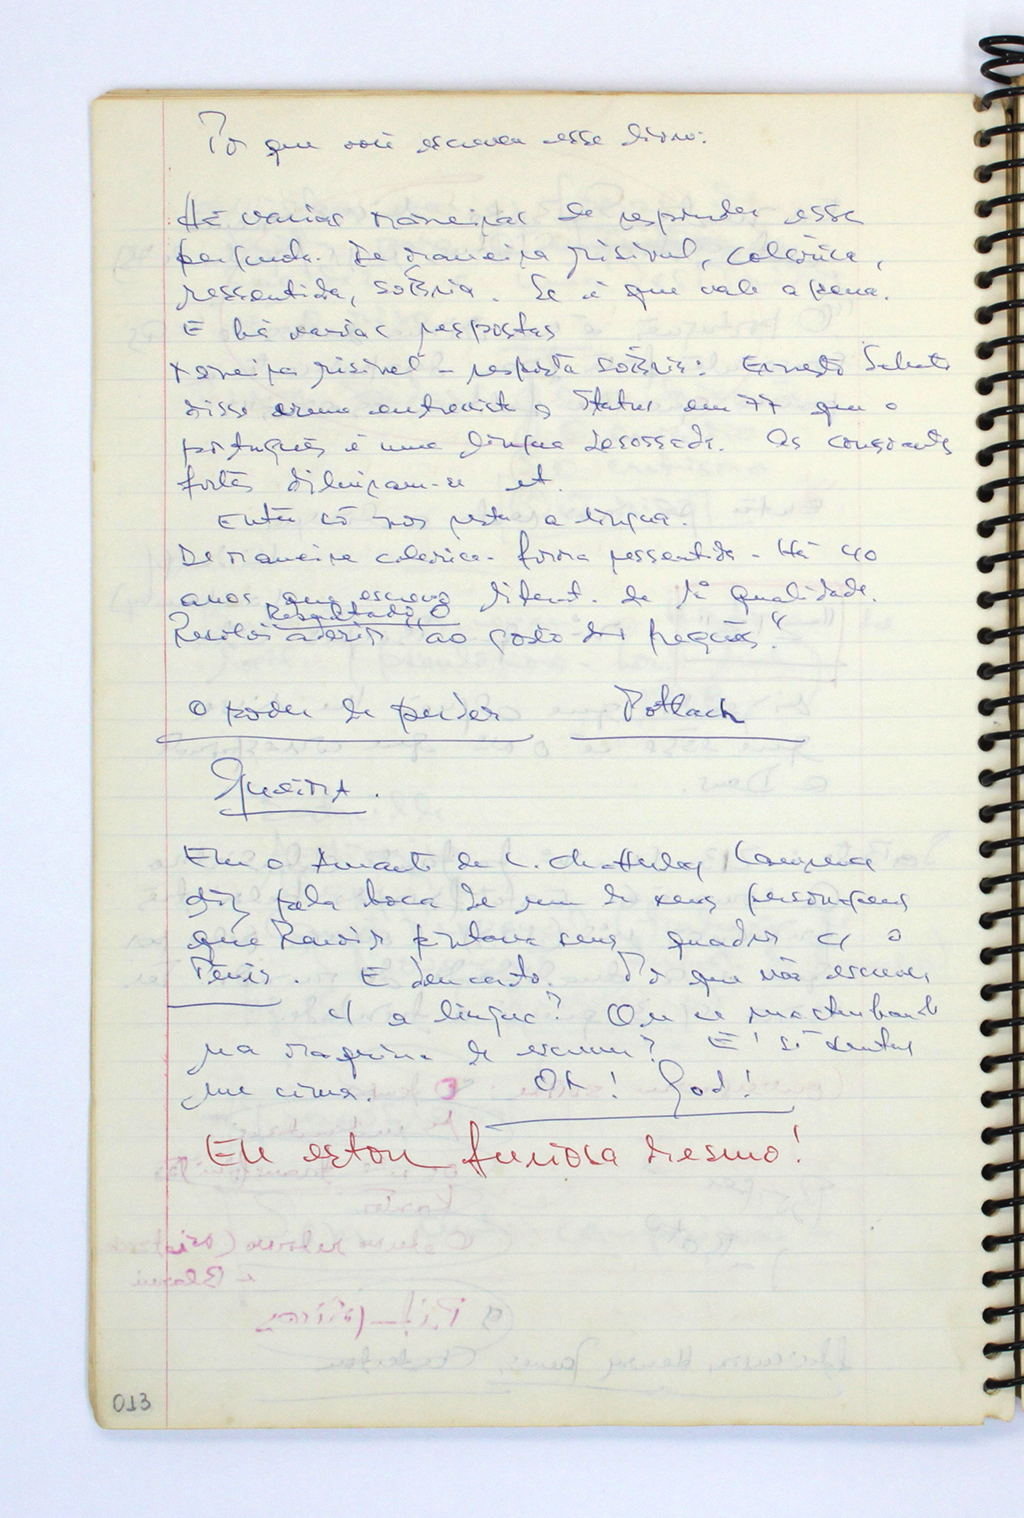 Por que você escreveu esse livro:
Há varias maneiras de responder essa
pergunta. De maneira risivel, colérica,
ressentida, sobria. Se é que vale a pena.
E há varias respostas
Maneira risivel - resposta sobria: Ernesto Sabato
disse numa entrevista a Status em 77 que o
português é uma lingua desossada. As consoantes
fortes diluiram-se et.
Então só nos resta a lingua.
De maneira colerica - forma ressentida - Há 40
anos que escrevo literat. de 1ª qualidade.
Resultado: 0
Resolvi aderir "ao gosto do freguês".
O poder de perder Potlach
Em o Amante de L. Chatterley Lawrence
diz pela boca de um de seus personagens
que Renoir pintava seus quadros c/ o
Penis. E deu certo. Por que não escrever
c/ a lingua? Ou se masturbando
na maquina de escrever? É só sentar
em cima. Oh! God!
Eu estou furiosa mesmo!
013